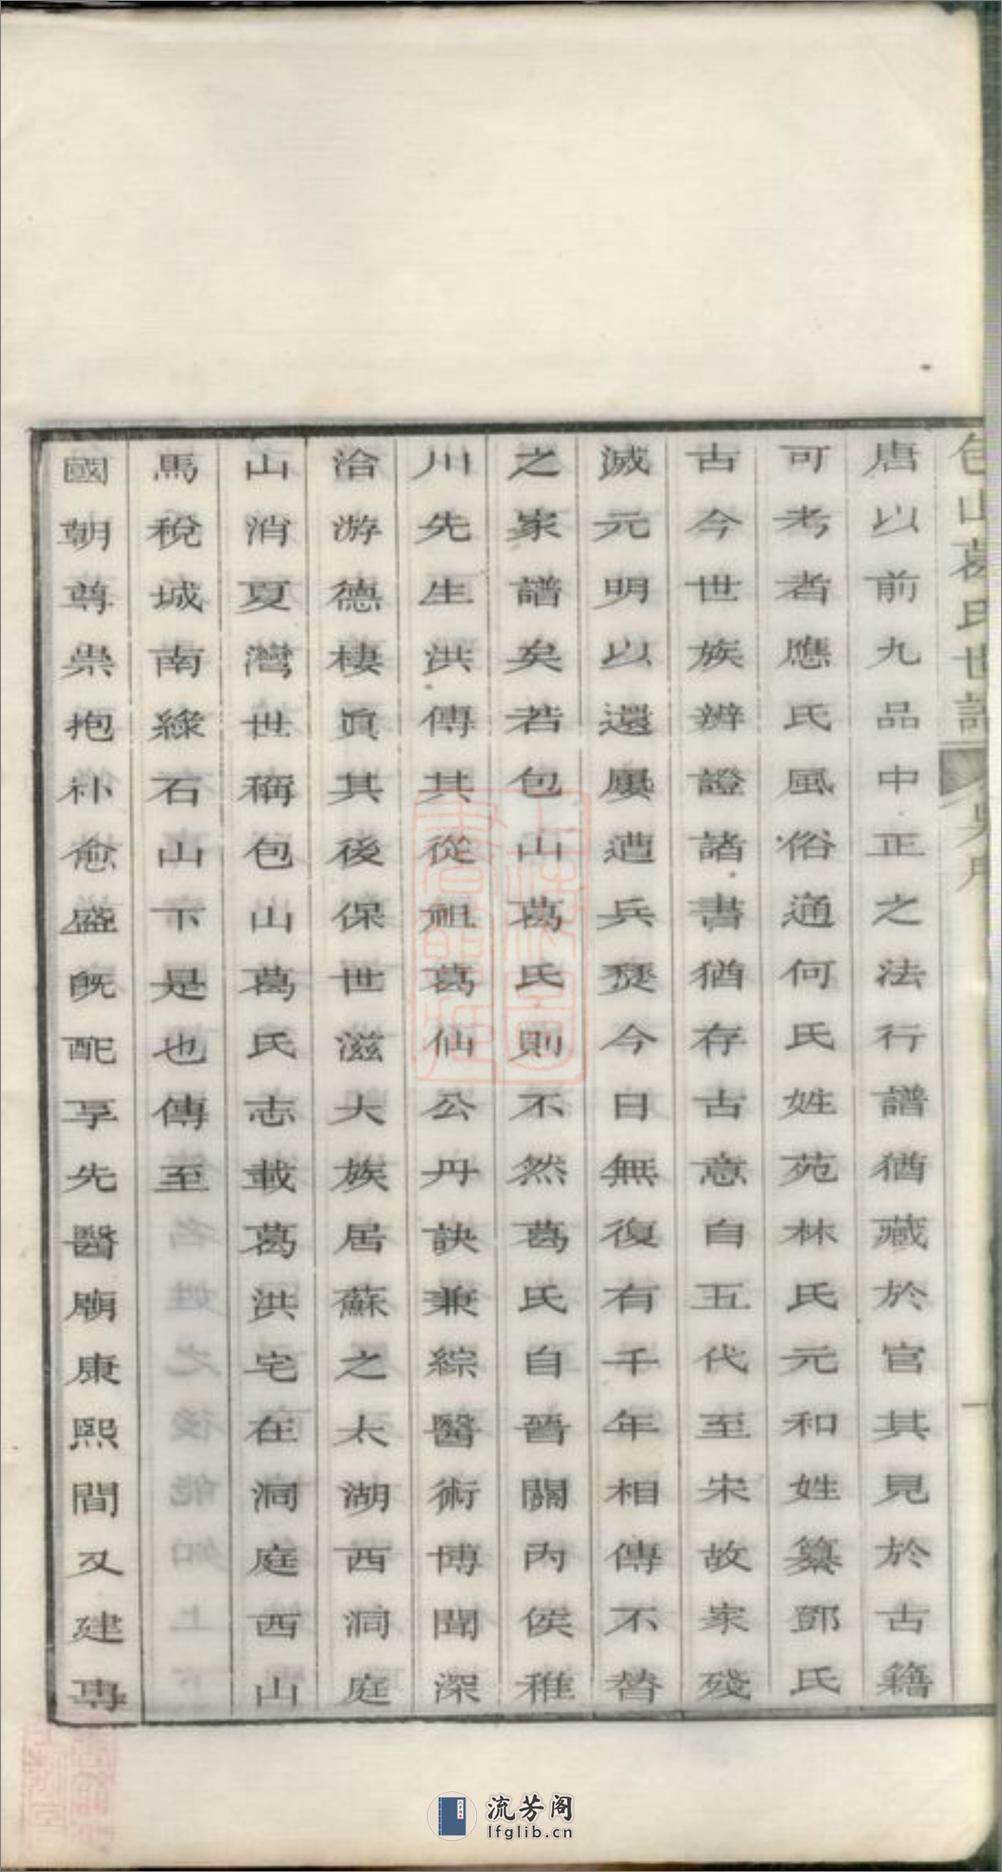 包山葛氏世譜
吳序
一
唐以前九品中正之法行譜猶藏於官其見於古籍
可考者應氏風俗通何氏姓苑林氏元和姓纂鄧氏
古今世族辨證諸書猶存古意自五代至宋故家殘
滅元明以還屢遭兵燹今日無復有千年相傳不替
之家譜矣若包山葛氏則不然葛氏自晉關內侯稚
川先生洪傳其從祖葛仙公丹訣兼綜醫術博聞深
洽游德棲眞其後保世滋大族居蘇之太湖西洞庭
山消夏灣世稱包山葛氏志載葛洪宅在洞庭西山
馬稅城南綠石山下是也傳至
國朝尊崇抱朴愈盛旣配享先醫廟康熙間又建專
流芳阁
lfglib.cn